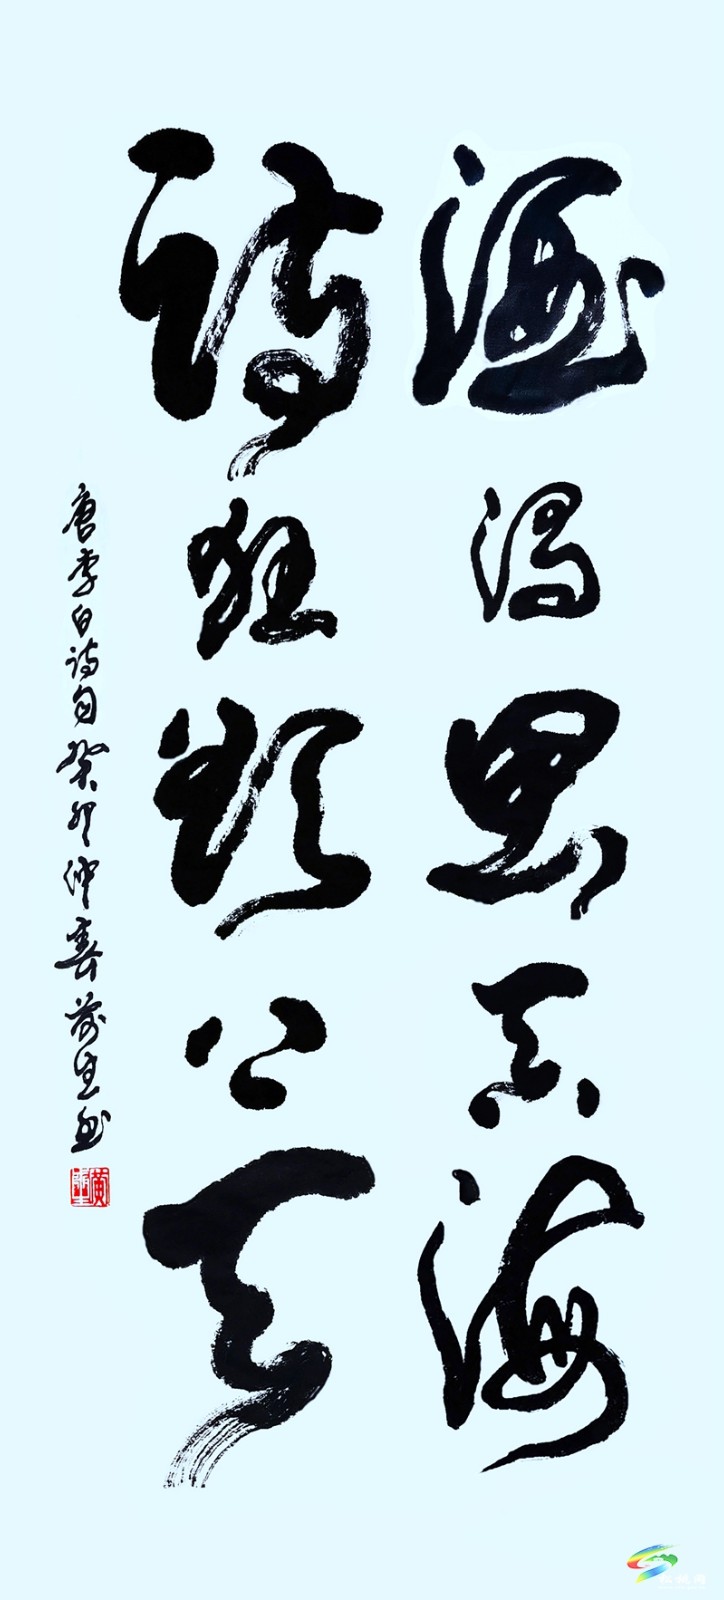 酒渴思吞海
詩狂欲上天
唐李白诗句癸卯仲春